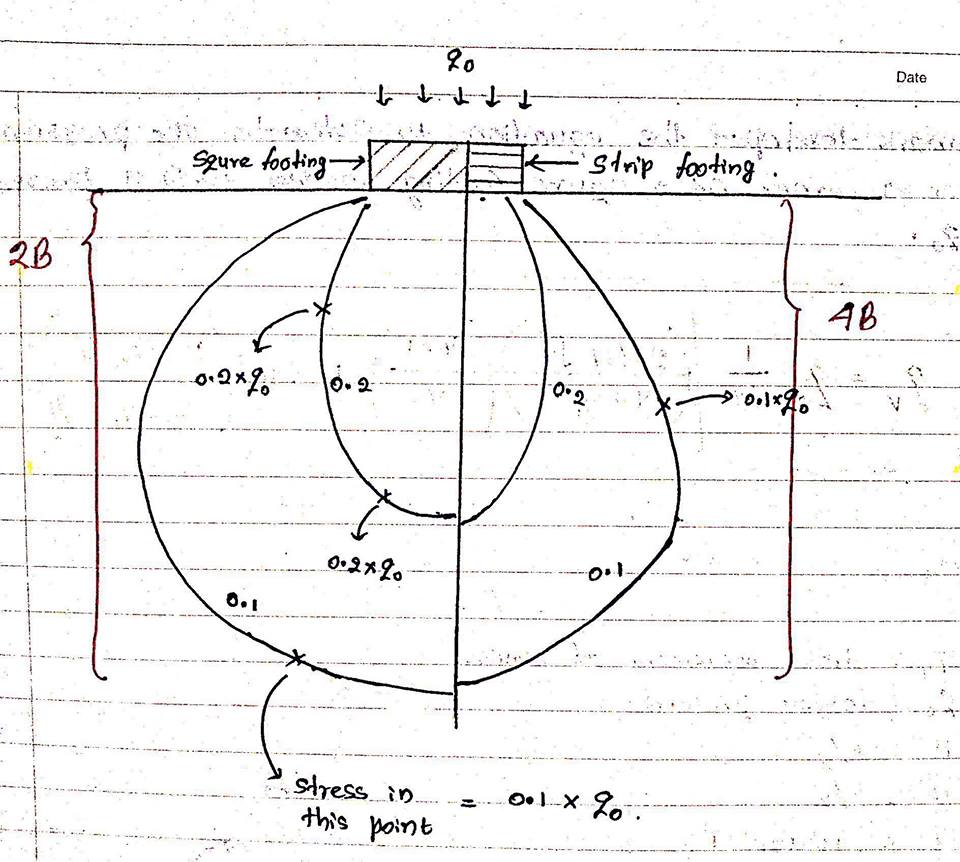 Date
q₀
Squre footing
Strip footing.
2B
4B
0.2×q₀
0.2
0.2
0.1×q₀
0.2×q₀
0.1
0.1
stress in this point = 0.1 × q₀.